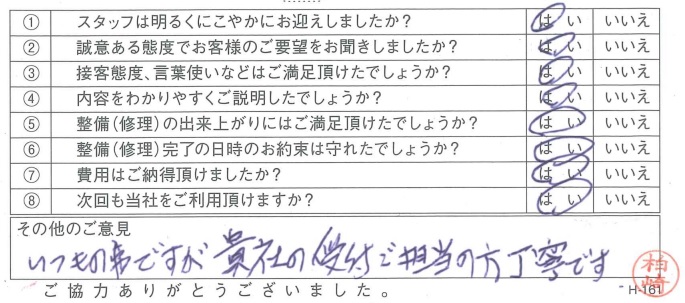 ① スタッフは明るくにこやかにお迎えしましたか? はい いいえ
② 誠意ある態度でお客様のご要望をお聞きしましたか? はい いいえ
③ 接客態度、言葉使いなどはご満足頂けたでしょうか? はい いいえ
④ 内容をわかりやすくご説明したでしょうか? はい いいえ
⑤ 整備(修理)の出来上がりにはご満足頂けたでしょうか? はい いいえ
⑥ 整備(修理)完了の日時のお約束は守れたでしょうか? はい いいえ
⑦ 費用はご納得頂けましたか? はい いいえ
⑧ 次回も当社をご利用頂けますか? はい いいえ
その他のご意見
いつもの事ですが 貴社の受付ご担当の方丁寧です
柏崎
ご協力ありがとうございました。 H-161